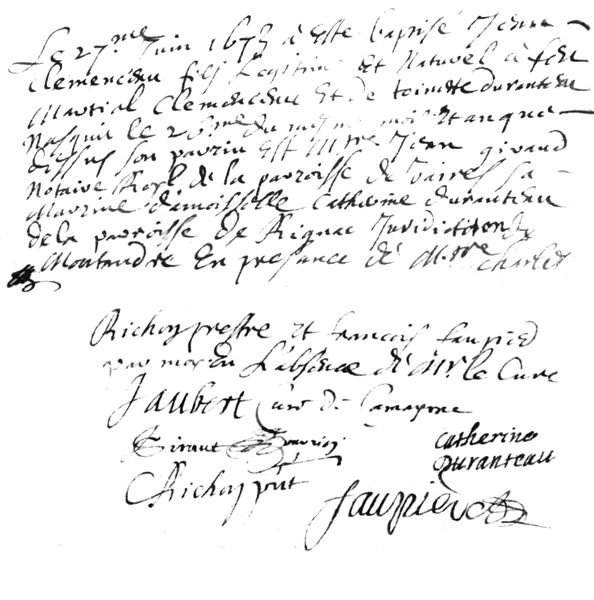 Le 27me Juin 1673 a este baptisé Jean
Clemenceau fils Legitime Et Naturel à feu
Martial Clemenceau Et de toinette duranteau
Nasquit le 26me du mesme mois Et an que
dessus son parrin Est Mtre Jean giraud
Notaire Royl de la parroisse de Vaires sa
Marrine damoisselle Catherine duranteau
de la parroisse de Rignac Juridiction de
Montandre En presance de Mtre Charles
Richoy prestre et francois faupied
par moy En L'absence de Mr le Cure
Jaubert Curé de
Giraut parrin
Catherine
Duranteau
Richoy prt
faupied